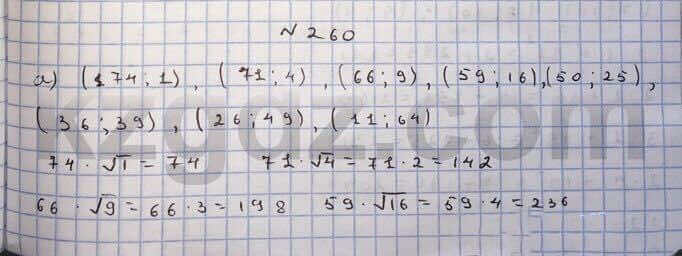 N 260
а) (174;1), (71;4), (66;9), (59;16), (50;25),
(36;39), (26;49), (11;64)
74 · √1 = 74 71 · √4 = 71 · 2 = 142
66 · √9 = 66 · 3 = 198 59 · √16 = 59 · 4 = 236
kzgaz.com